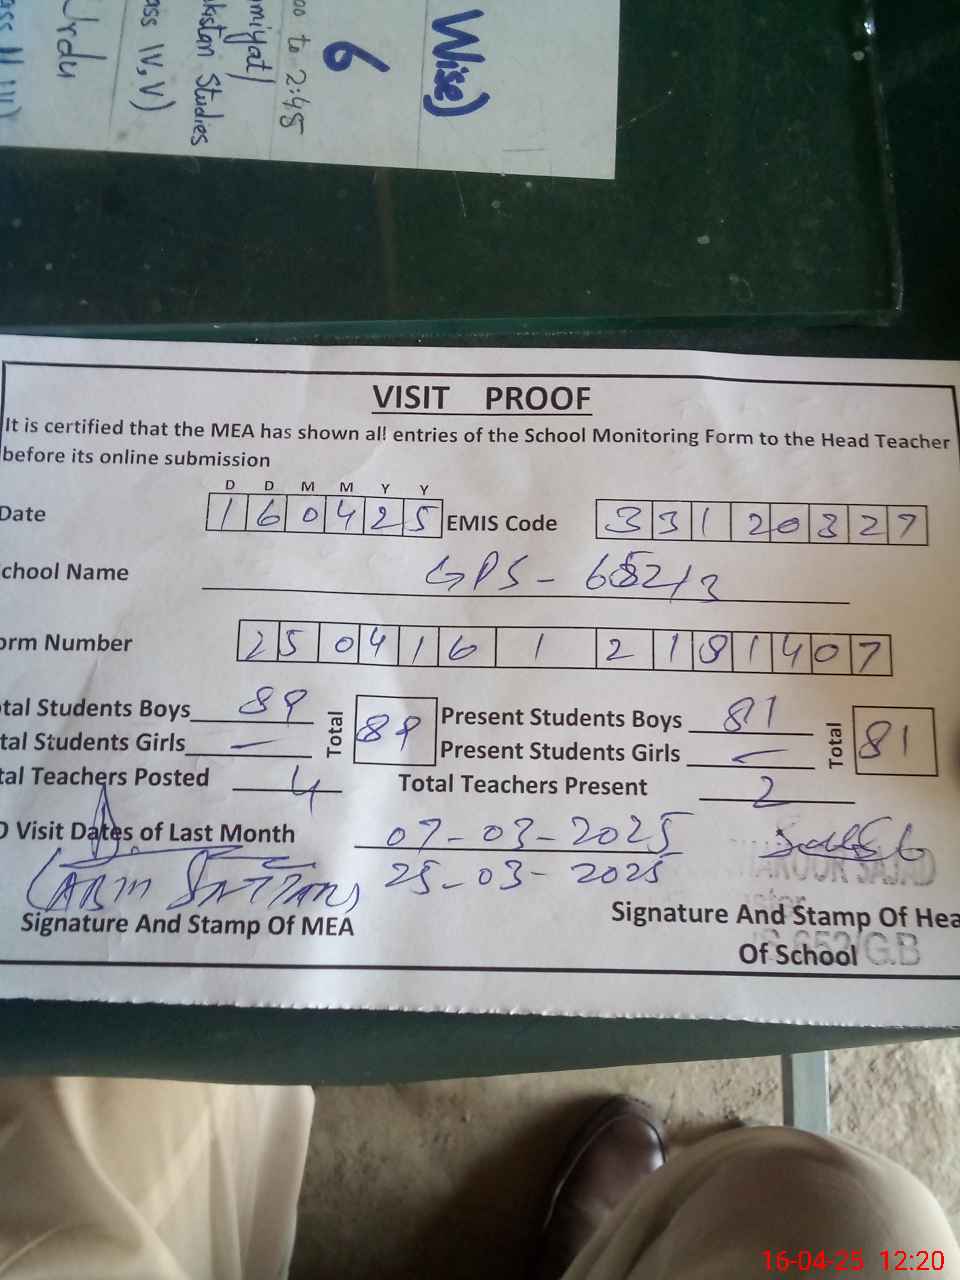 Wise)
6
00 to 2:45
miyat/
kistan Studies
ass IV, V)
Urdu
VISIT PROOF
It is certified that the MEA has shown all entries of the School Monitoring Form to the Head Teacher
before its online submission
D D M M Y Y
Date 160425 EMIS Code 33120327
chool Name GPS -
orm Number 25041612181407
tal Students Boys 89 Total 89 Present Students Boys 81 Total 81
tal Students Girls — Present Students Girls —
tal Teachers Posted 4 Total Teachers Present 2
O Visit Dates of Last Month 07-03-2025
25-03-2025
Signature And Stamp Of MEA
Signature And Stamp Of Hea
Of School
16-04-25 12:20